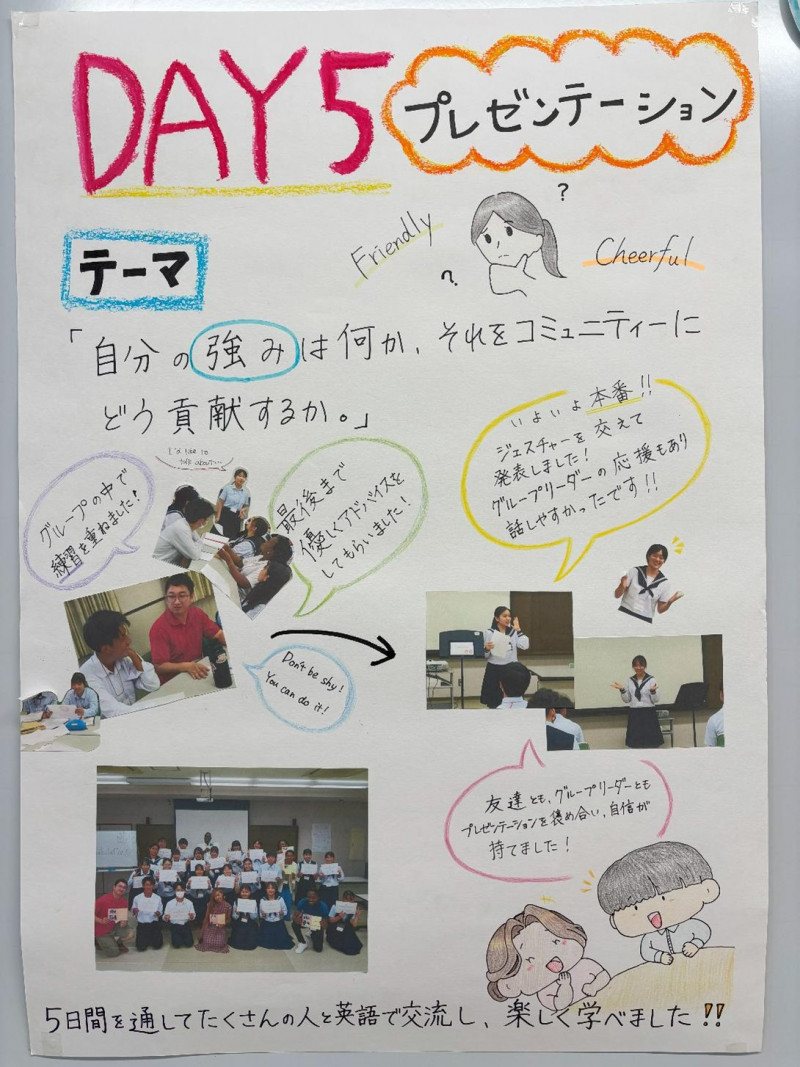 DAY5
プレゼンテーション
Friendly
?
?
Cheerful
テーマ
「自分の強みは何か、それをコミュニティーに
どう貢献するか。」
グループの中で
練習を重ねました!
I'd like to
talk about~
最後まで
優しくアドバイスを
してもらいました!
いよいよ本番!!
ジェスチャーを交えて
発表しました!
グループリーダーの応援もあり
話しやすかったです!!
Don't be shy!
You can do it!
友達とも、グループリーダーとも
プレゼンテーションを褒め合い、自信が
持てました!
5日間を通してたくさんの人と英語で交流し、楽しく学べました!!